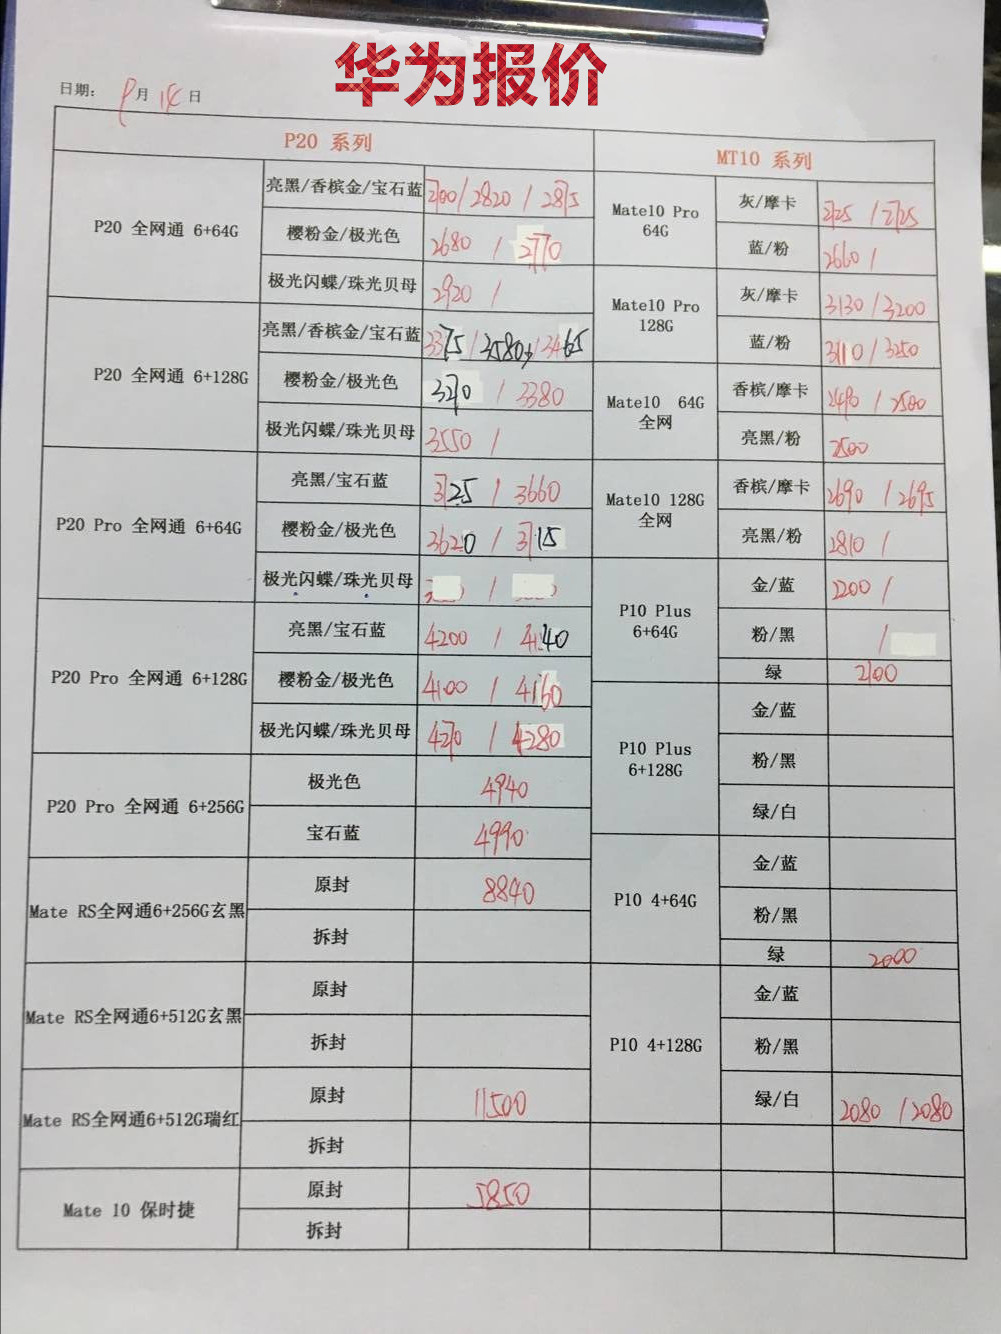 华为报价
日期: 9月 日
P20 系列 MT10 系列
P20 全网通 6+64G
亮黑/香槟金/宝石蓝 2700/2820/2875
樱粉金/极光色 2680/2770
极光闪蝶/珠光贝母 2920/
P20 全网通 6+128G
亮黑/香槟金/宝石蓝 3375/3580/3465
樱粉金/极光色 3270/3380
极光闪蝶/珠光贝母 3550/
P20 Pro 全网通 6+64G
亮黑/宝石蓝 /3660
樱粉金/极光色 3620/3715
极光闪蝶/珠光贝母 /
P20 Pro 全网通 6+128G
亮黑/宝石蓝 4200/4140
樱粉金/极光色 4100/4160
极光闪蝶/珠光贝母 4270/4280
P20 Pro 全网通 6+256G
极光色 4940
宝石蓝 4990
Mate RS全网通6+256G玄黑
原封 8840
拆封
Mate RS全网通6+512G玄黑
原封
拆封
Mate RS全网通6+512G瑞红
原封 11500
拆封
Mate 10 保时捷
原封 5850
拆封
Mate10 Pro
64G
灰/摩卡 2725/2725
蓝/粉 2660/
Mate10 Pro
128G
灰/摩卡 3130/3200
蓝/粉 3110/3250
Mate10 64G
全网
香槟/摩卡 2490/2500
亮黑/粉 2500
Mate10 128G
全网
香槟/摩卡 2690/2695
亮黑/粉 2810/
P10 Plus
6+64G
金/蓝 2200/
粉/黑 /
绿 2100
P10 Plus
6+128G
金/蓝
粉/黑
绿/白
P10 4+64G
金/蓝
粉/黑
绿 2000
P10 4+128G
金/蓝
粉/黑
绿/白 2080/2080